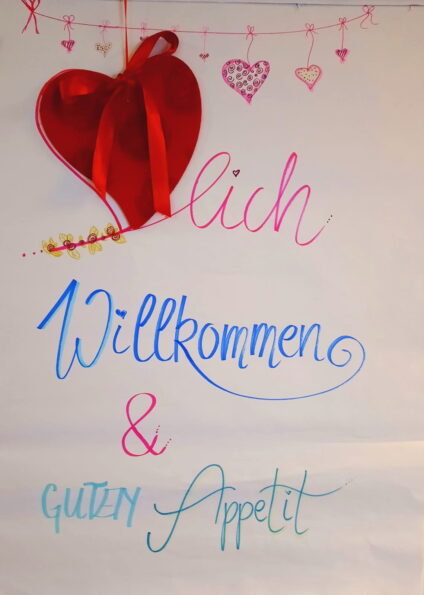 lich
Willkommen
&
GUTEN Appetit